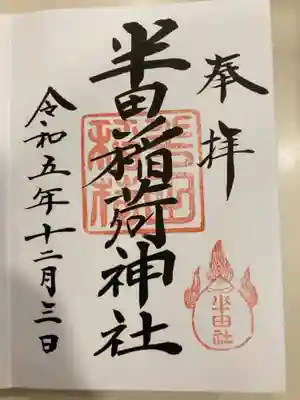 奉拝
半田稲荷神社
令和五年十二月三日
半田社